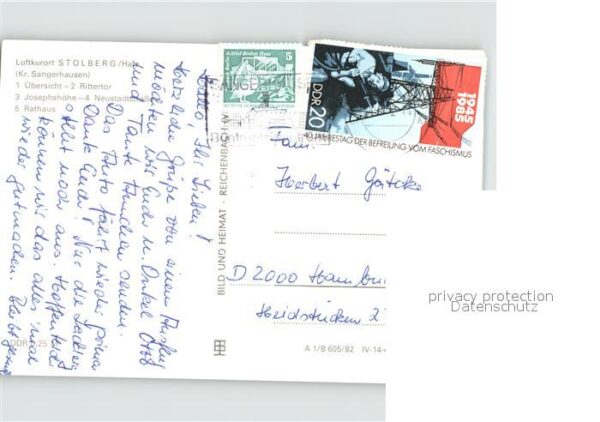 Luftkurort STOLBERG/Harz
(Kr. Sangerhausen)
1 Übersicht – 2 Rittertor
3 Josephshöhe – 4 Neustadt
5 Rathaus
Hallo, Ihr Lieben!
Herzliche Grüße von einem Ausflug
möchten wir Euch u. Onkel Otto
und Tante senden.
Das Auto fährt wieder prima
Danke Euch! Nur die
steht noch aus. Hoffentlich
können wir das alles mal
wieder gutmachen. Bleibt gesund
DDR
BILD UND HEIMAT · REICHENBACH (V
A 1/B 605/82 IV-14-
Alfred Brehm Haus
5
DDR 20
1945
1985
40. JAHRESTAG DER BEFREIUNG VOM FASCHISMUS
Fam.
Herbert
D 2000 Hambu
privacy protection
Datenschutz